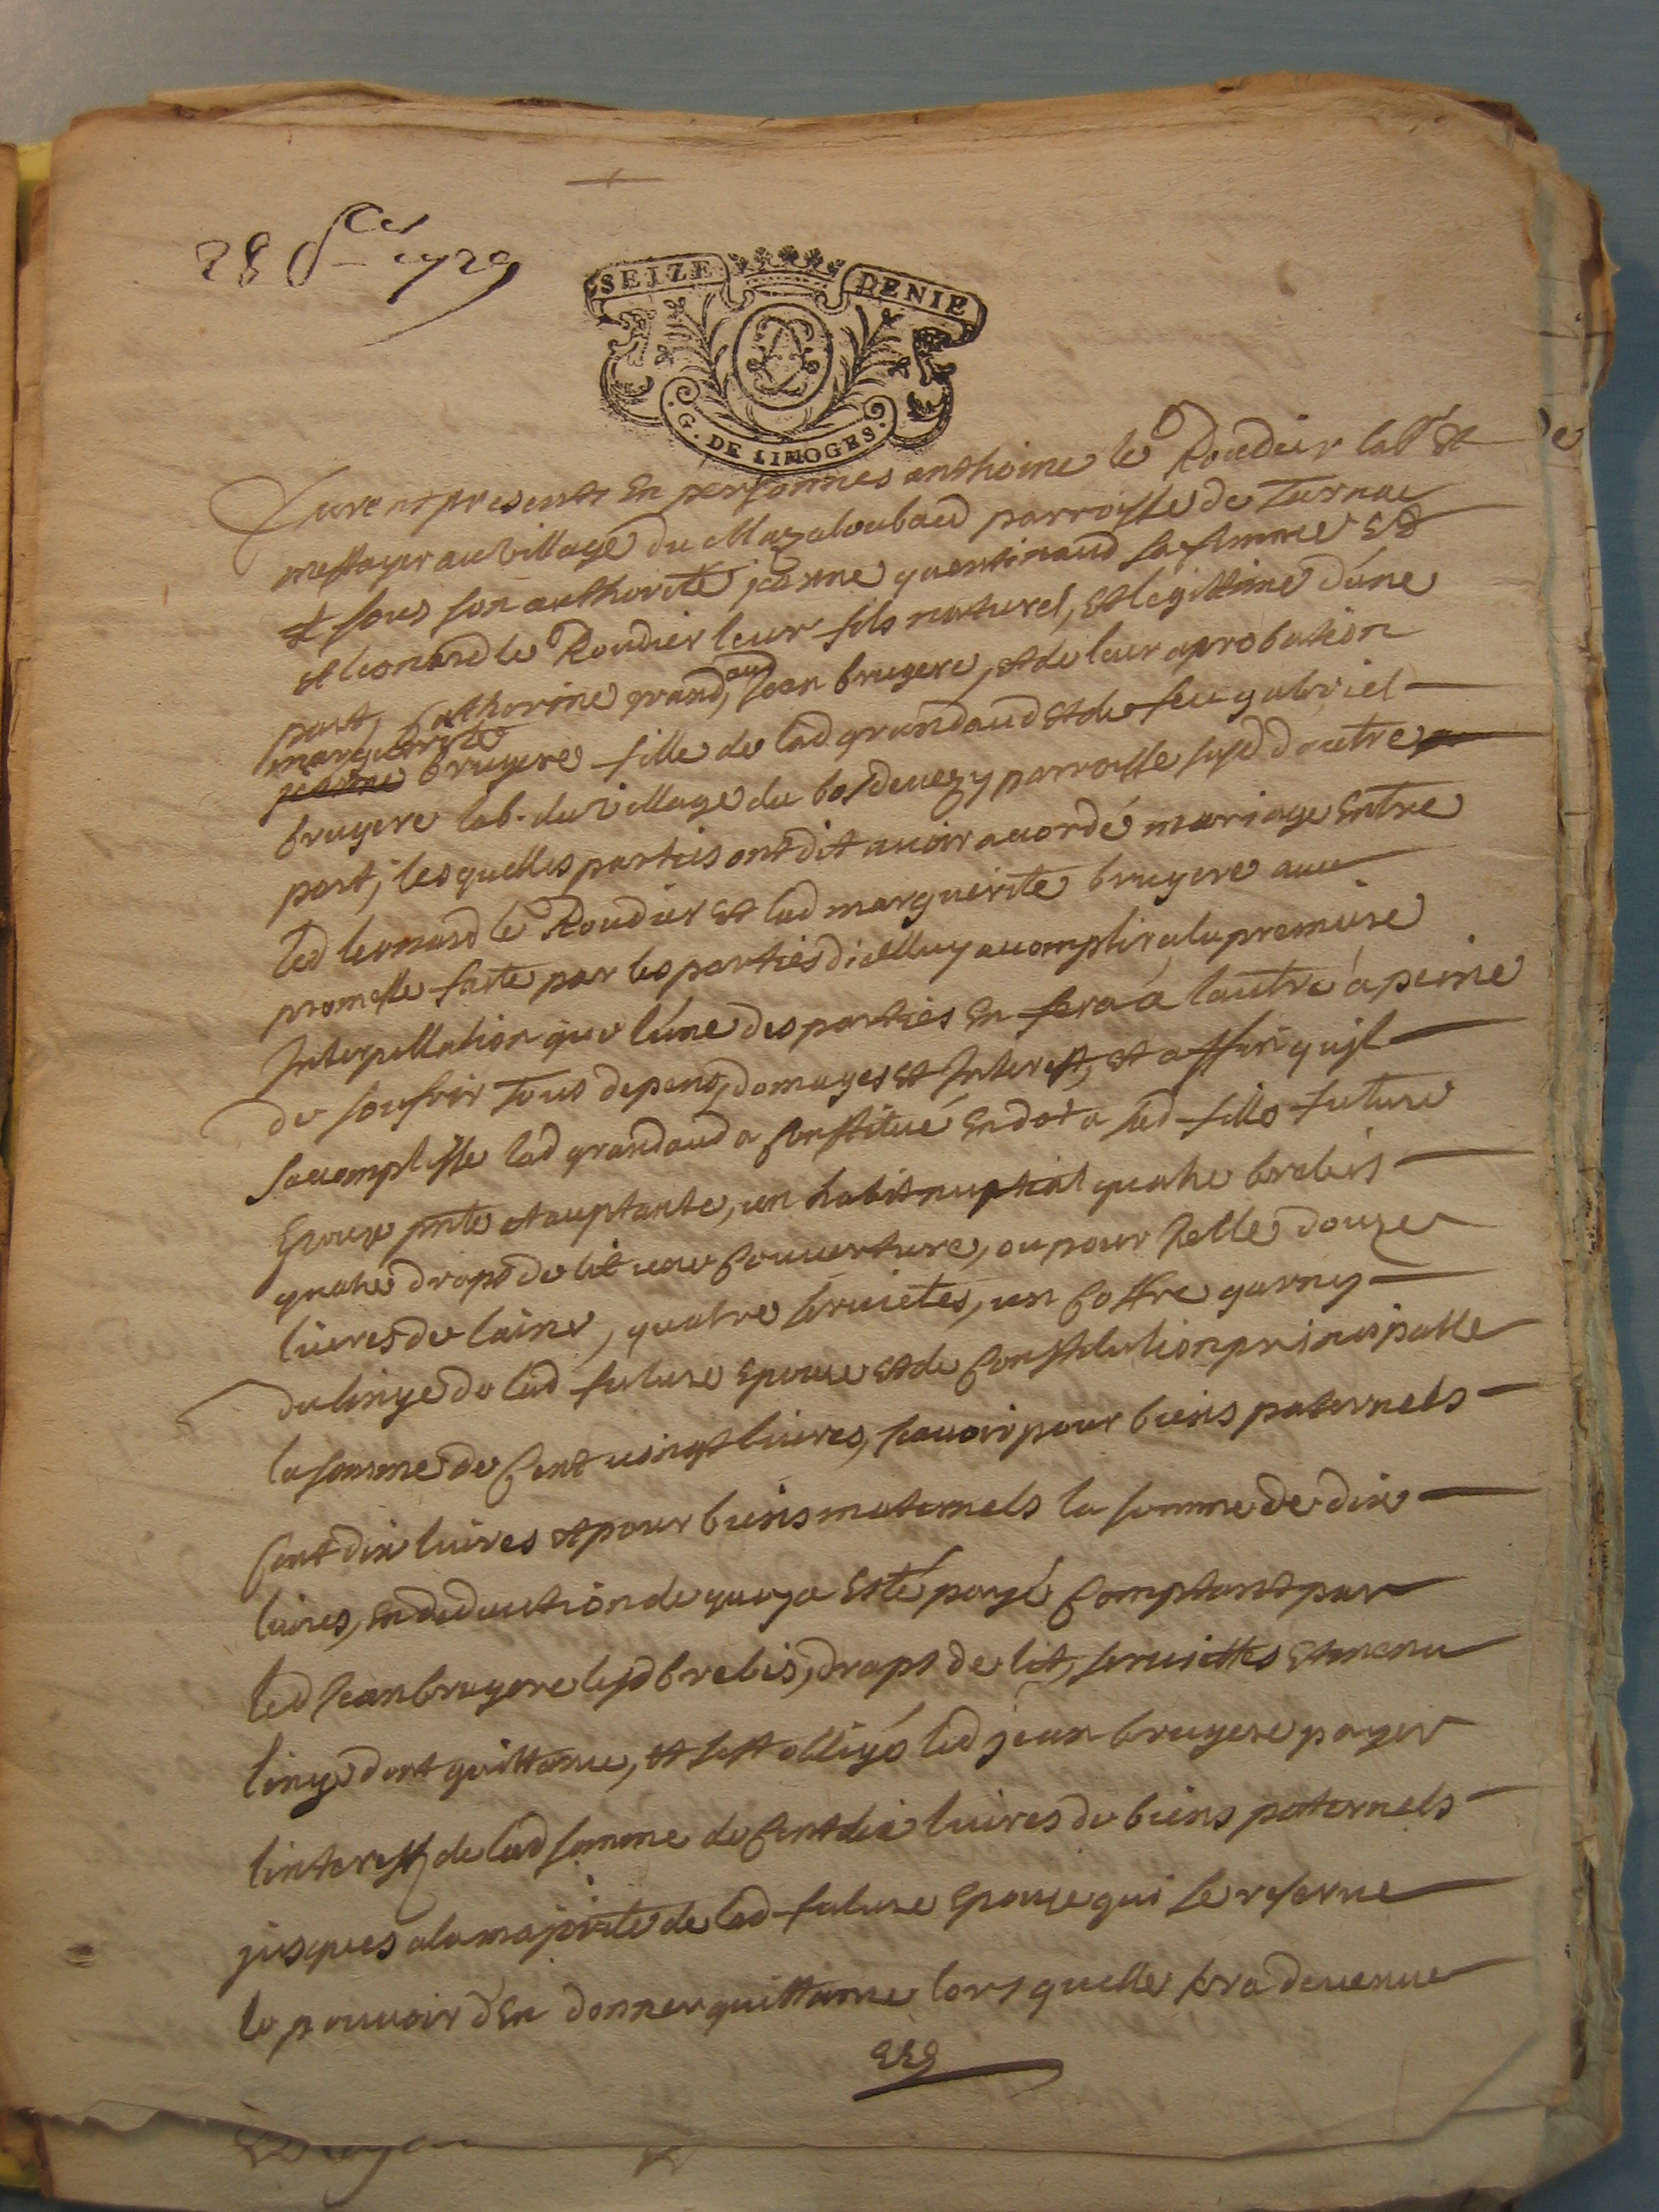 28 Xbre 1729
SEIZE DENIE
G. DE LIMOGES.
furent presents En personnes anthoine le Roudier labr et
mestayer au village du Mazaloubaud parroisse de Tarnac
et sous son authorité jeanne quentinaud sa femme Et
et leonard le Roudier leur fils naturel, et légittime d'une
part, Catherine grandaud, Jean bruyere, et de leur aprobation
marguerite
jeanne bruyere fille de lad grandaud et de feu gabriel
bruyere lab. du village du bosdeuezy parroisse susd d'autre
part, lesquelles parties ont dit auoir accordé mariage Entre
led leonard le Roudier et lad marguerite bruyere auec
promesse faite par les parties d'icelluy accomplir a la premiere
Interpellation que l'une des parties En fera à lautre à peine
de soufrir tous depens, domages et Interest, et affin quil
saccomplisse lad grandaud a Constitué En dot a sad fille future
Epouse pnte et aceptante, un habit nuptial quatre brebis
quatre draps de lit une Couuerture, ou pour Icelle douze
liures de laine, quatre seruietes, un Coffre garny
du linge de lad future Epouse et de Constitution principalle
la somme de Cent uingt liures, scauoir pour biens paternels
Cent dix liures et pour biens maternels la somme de dix
liures, en deduction de quoy a Esté payé Comptant par
led Jean bruyere lesd brebis, draps de lit, seruiettes et menu
linge dont quittance, et sest obligé led jean bruyere payer
linterest de lad somme de Cent dix liures de biens paternels
jusques a la majorité de lad future Epouse qui se reserue
le pouuoir d'En donner quittance lors quelle sera deuenue